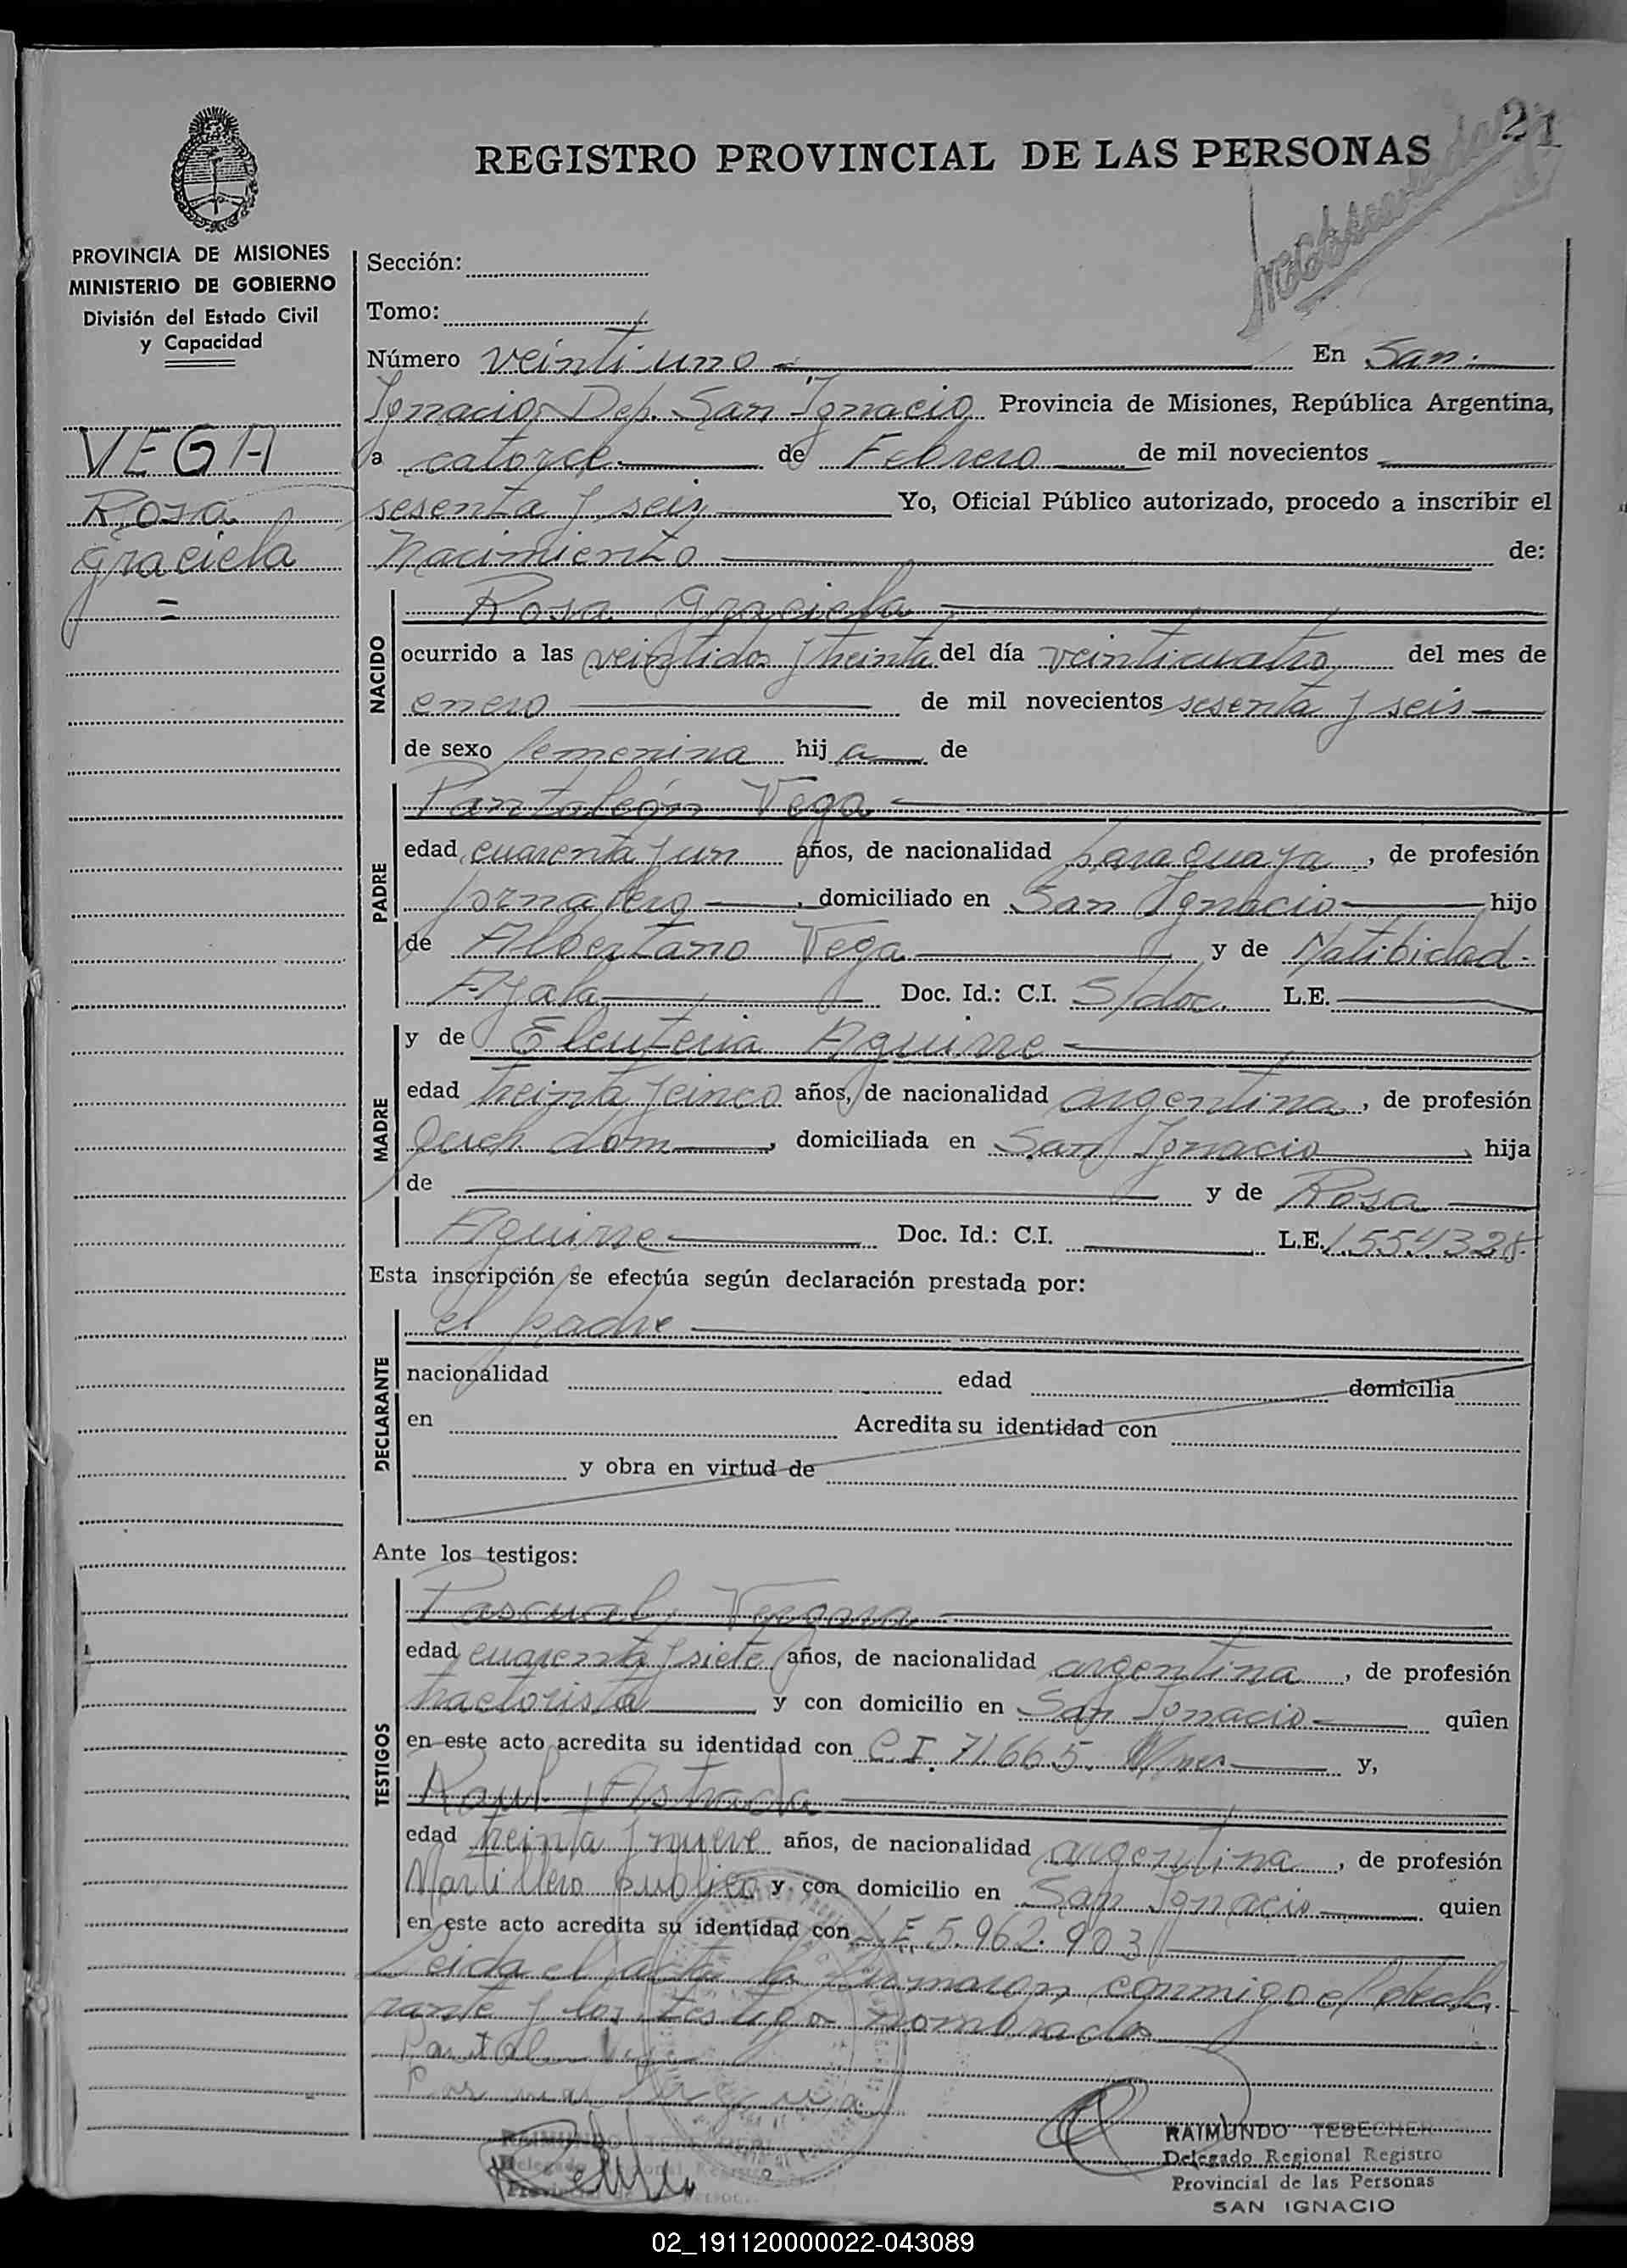 21
REGISTRO PROVINCIAL DE LAS PERSONAS
PROVINCIA DE MISIONES
MINISTERIO DE GOBIERNO
División del Estado Civil
y Capacidad
VEGA
Rosa
Graciela
Sección:
Tomo:
Número veintiuno En San
Ignacio Dep. San Ignacio Provincia de Misiones, República Argentina,
a catorce de Febrero de mil novecientos
sesenta y seis Yo, Oficial Público autorizado, procedo a inscribir el
Nacimiento de:
NACIDO
Rosa Graciela
ocurrido a las veintidos y treinta del día veinticuatro del mes de
enero de mil novecientos sesenta y seis
de sexo femenina hija de
PADRE
Pantaleón Vega
edad cuarenta y un años, de nacionalidad paraguaya, de profesión
jornalero, domiciliado en San Ignacio hijo
de Albertano Vega y de Natibidad
Ayala Doc. Id.: C.I. S/doc. L.E.
MADRE
y de Eleuteria Aguirre
edad treinta y cinco años, de nacionalidad argentina, de profesión
Queh. dom, domiciliada en San Ignacio, hija
de y de Rosa
Aguirre Doc. Id.: C.I. L.E. 1554328
Esta inscripción se efectúa según declaración prestada por:
DECLARANTE
el padre
nacionalidad edad domicilia
en Acredita su identidad con
y obra en virtud de
Ante los testigos:
TESTIGOS
Pascual Vergara
edad cuarenta y siete años, de nacionalidad argentina, de profesión
tractorista y con domicilio en San Ignacio quien
en este acto acredita su identidad con C.I. 71.665. Mnes y,
Raul Astrada
edad treinta y nueve años, de nacionalidad argentina, de profesión
Martillero publico y con domicilio en San Ignacio quien
en este acto acredita su identidad con L.E. 5.962.903
Leida el acta la firmaron conmigo el decla
rante y los testigos nombrados
RAIMUNDO TEBECHER
Delegado Regional Registro
Provincial de las Personas
SAN IGNACIO
02_191120000022-043089